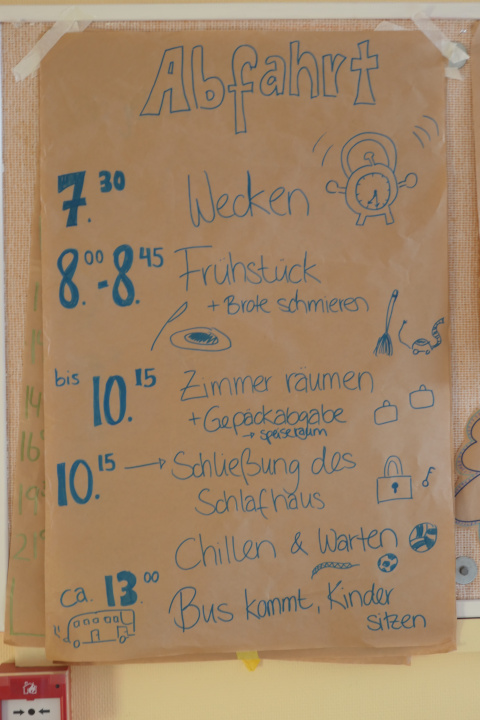 Abfahrt
7.30 Wecken
8.00-8.45 Frühstück
+ Brote schmieren
bis 10.15 Zimmer räumen
+ Gepäckabgabe
→ speiseraum
10.15 → Schließung des
Schlafhaus
Chillen & Warten
ca. 13.00 Bus kommt, Kinder
sitzen